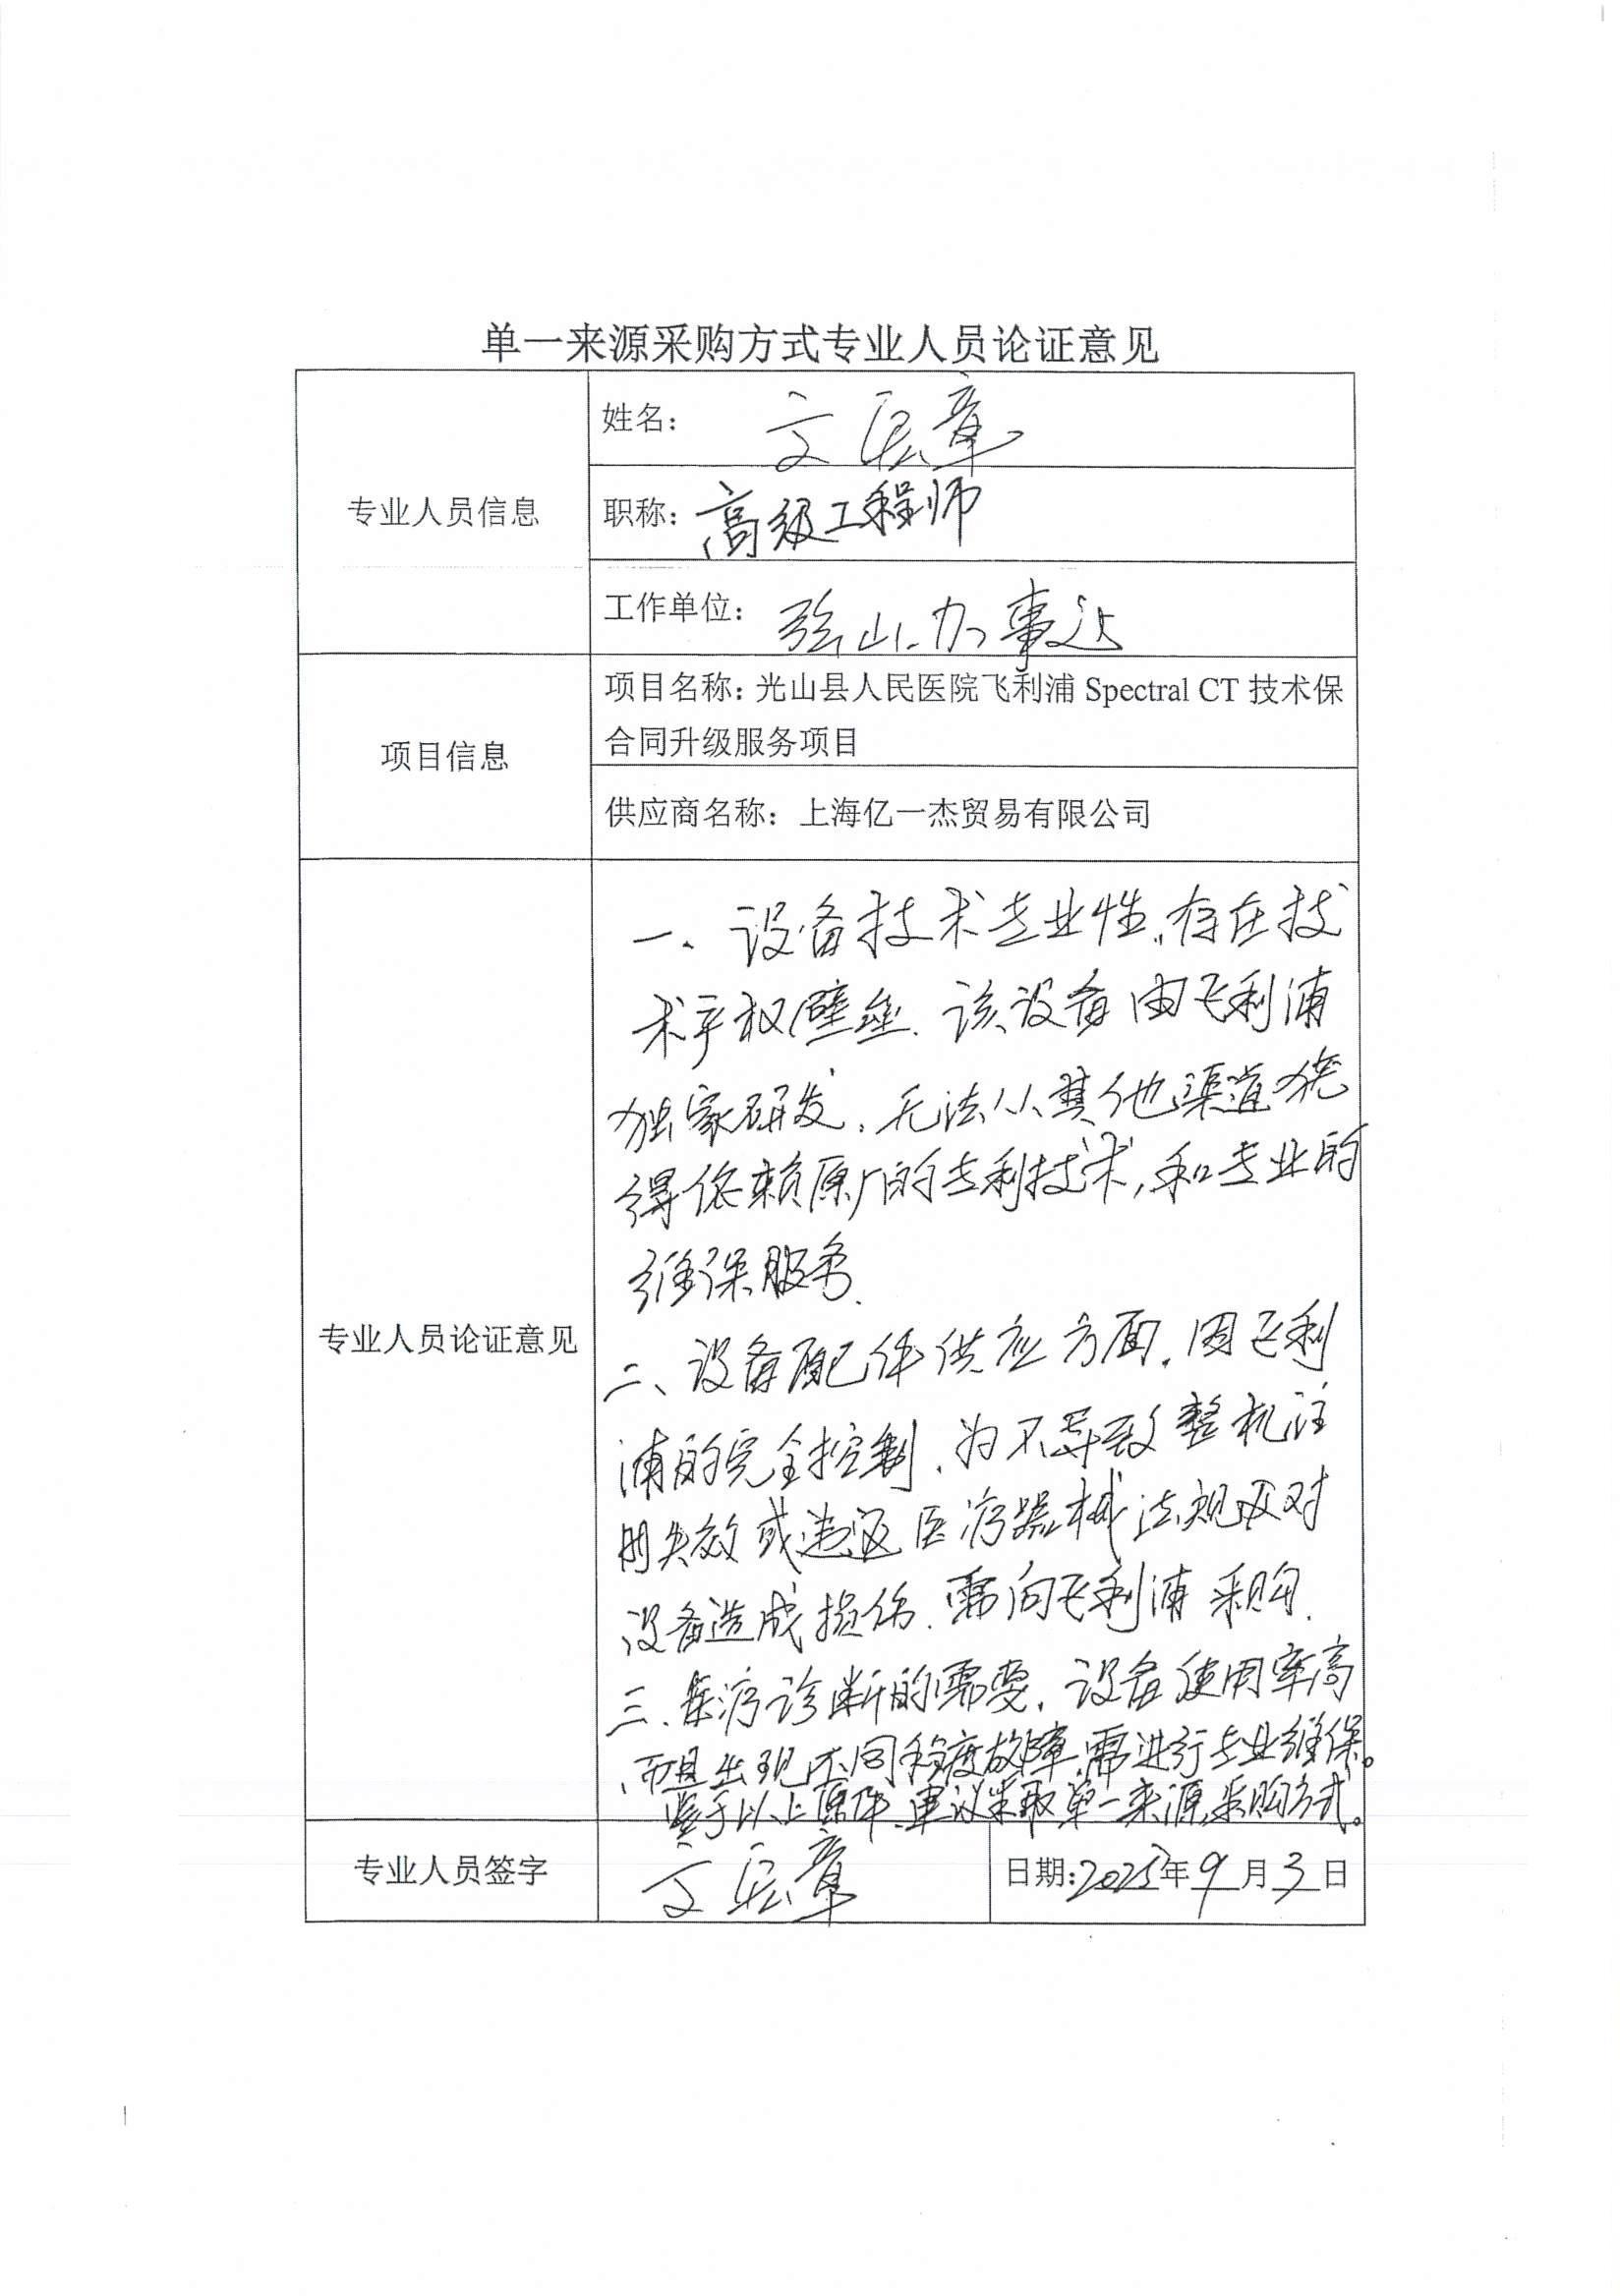 单一来源采购方式专业人员论证意见
专业人员信息
姓名：文 章
职称：高级工程师
工作单位：山办事处
项目信息
项目名称：光山县人民医院飞利浦 Spectral CT 技术保
合同升级服务项目
供应商名称：上海亿一杰贸易有限公司
专业人员论证意见
一、设备技术专业性，存在技
术产权壁垒.该设备由飞利浦
独家研发，无法从其他渠道获
得依赖原厂的专利技术，和专业的
维保服务.
二、设备配件供应方面.因飞利
浦的完全控制.为不导致整机注
册失效或违返医疗器械法规及对
设备造成损伤.需向飞利浦采购.
三.医疗诊断的需要.设备使用率高
，而且出现不同程度故障,需进行专业维保。
鉴于以上原件.建议采取单一来源采购方式。
专业人员签字
文 章
日期:2025年9月3日